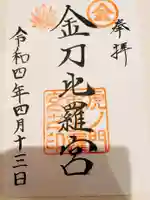 奉拝
金
金刀比羅宮
虎ノ門
令和四年四月十三日